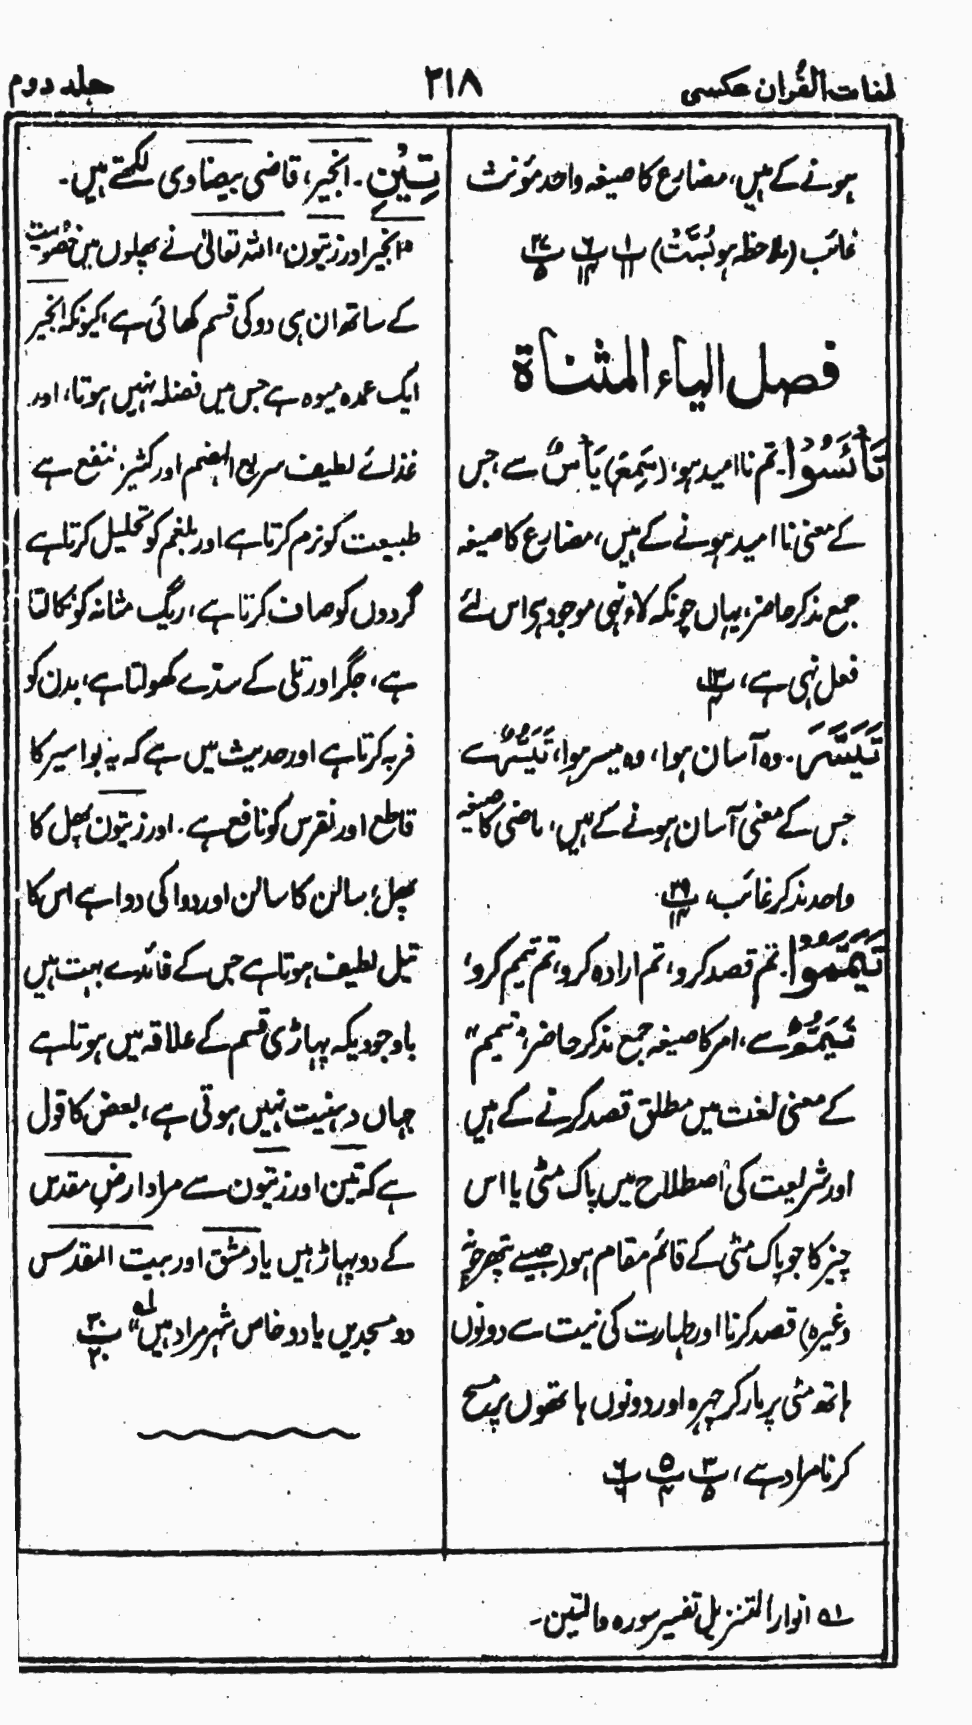 لغات القرآن عکسی
۲۱۸
جلد دوم
ہونے کے ہیں، مضارع کا صیغہ واحد مؤنث
غائب (ملاحظہ ہو بُسَّتْ) پ ۱ ۱۱ پ ۶ ۱۴ پ ۲۷ ۵
فصل الیاء المثناة
تَایْئَسُوْا۔ تم ناامید ہو، (سَمِعَ) یَأْسٌ سے جس
کے معنی نا امید ہونے کے ہیں، مضارع کا صیغہ
جمع مذکر حاضر، یہاں چونکہ لاءِ نہی موجود ہی اس لئے
فعل نہی ہے، پ ۱۳ ۴
تَیَسَّرَ۔ وہ آسان ہوا، وہ میسر ہوا، تَیَسُّرٌ سے
جس کے معنی آسان ہونے کے ہیں، ماضی کا صیغہ
واحد مذکر غائب، پ ۲۹ ۱۴
تَیَمَّمُوْا۔ تم قصد کرو، تم ارادہ کرو، تم تیمم کرو،
تَیَمُّمٌ سے، امر کا صیغہ جمع مذکر حاضر، "تیمم"
کے معنی لغت میں مطلق قصد کرنے کے ہیں
اور شریعت کی اصطلاح میں پاک مٹی یا اس
چیز کا جو پاک مٹی کے قائم مقام ہو (جیسے پتھر چونہ
وغیرہ) قصد کرنا اور طہارت کی نیت سے دونوں
ہاتھ مٹی پر مار کر چہرہ اور دونوں ہاتھوں پر مسح
کرنا مراد ہے، پ ۳ ۵ پ ۵ ۴ پ ۶ ۶
تِیْنِ۔ انجیر، قاضی بیضاوی لکھتے ہیں۔
"انجیر اور زیتون، اللہ تعالیٰ نے پھلوں میں خصوصیت
کے ساتھ ان ہی دو کی قسم کھائی ہے، کیونکہ انجیر
ایک عمدہ میوہ ہے جس میں فضلہ نہیں ہوتا، اور
غذائے لطیف سریع الہضم اور کثیر النفع ہے
طبیعت کو نرم کرتا ہے اور بلغم کو تحلیل کرتا ہے
گردوں کو صاف کرتا ہے، ریگ مثانہ کو نکالتا
ہے، جگر اور تلی کے سدّے کھولتا ہے، بدن کو
فربہ کرتا ہے اور حدیث میں ہے کہ یہ بواسیر کا
قاطع اور نقرس کو نافع ہے۔ اور زیتون پھل کا
پھل، سالن کا سالن اور دوا کی دوا ہے اس کا
تیل لطیف ہوتا ہے جس کے فائدے بہت ہیں
باوجودیکہ پہاڑی قسم کے علاقہ میں ہوتا ہے
جہاں دہنیت نہیں ہوتی ہے، بعض کا قول
ہے کہ تین اور زیتون سے مراد ارض مقدس
کے دو پہاڑ ہیں یا دمشق اور بیت المقدس
دو مسجدیں یا دو خاص شہر مراد ہیں" لہ پ ۳۰ ۲۰
لہ انوار التنزیل تفسیر سورہ والتین۔